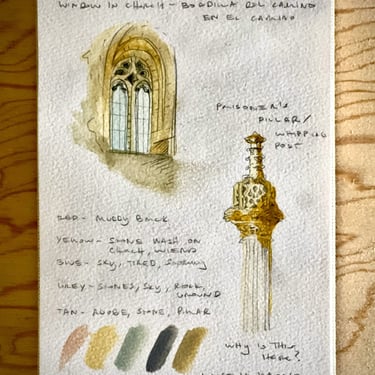 WINDOW IN CHURCH - BOADILLA DEL CAMINO
EN EL CAMINO
PRISONER'S
PILLAR/
WHIPPING
POST
RED - MUDDY BRICK
YELLOW - STONE WASH ON
CHURCH,
BLUE - SKY, TIRED,
GREY - STONES, SKY, ROCK,
GROUND
TAN - ADOBE, STONE, PILLAR
WHY IS THIS
HERE?